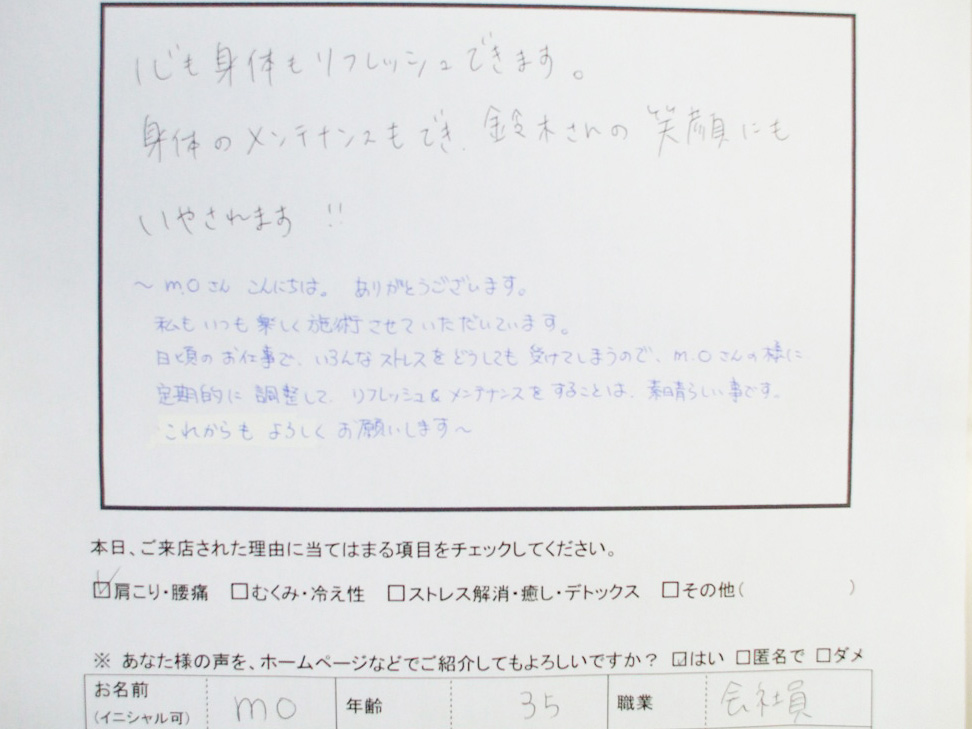 心も身体もリフレッシュできます。
身体のメンテナンスもでき、鈴木さんの笑顔にも
いやされます!!
～ m.Oさん こんにちは。 ありがとうございます。
私もいつも楽しく施術させていただいています。
日頃のお仕事で、いろんなストレスをどうしても受けてしまうので、m.Oさんの様に
定期的に調整して、リフレッシュ&メンテナンスをすることは、素晴らしい事です。
これからもよろしくお願いします～
本日、ご来店された理由に当てはまる項目をチェックしてください。
☑肩こり・腰痛 □むくみ・冷え性 □ストレス解消・癒し・デトックス □その他( )
※ あなた様の声を、ホームページなどでご紹介してもよろしいですか? ☑はい □匿名で □ダメ
お名前 (イニシャル可) mo 年齢 35 職業 会社員